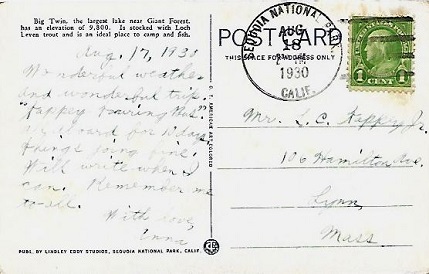 Big Twin, the largest lake near Giant Forest,
has an elevation of 9,800. Is stocked with Loch
Leven trout and is an ideal place to camp and fish.
Aug. 17, 1930
Wonderful weather
and wonderful trip.
"Happy Touring Bus."
on board for 10 days
things going fine.
Will write when I
can. Remember me
to all.
With love,
Emma
PUBL. BY LINDLEY EDDY STUDIOS, SEQUOIA NATIONAL PARK, CALIF.
C. T. AMERICAN ART COLORED
POST CARD
THIS SPACE FOR ADDRESS ONLY
SEQUOIA NATIONAL PARK
AUG
18
1930
CALIF.
1 CENT 1
Mr. L. C. Happy Jr.
106 Hamilton Ave.
Lynn,
Mass.